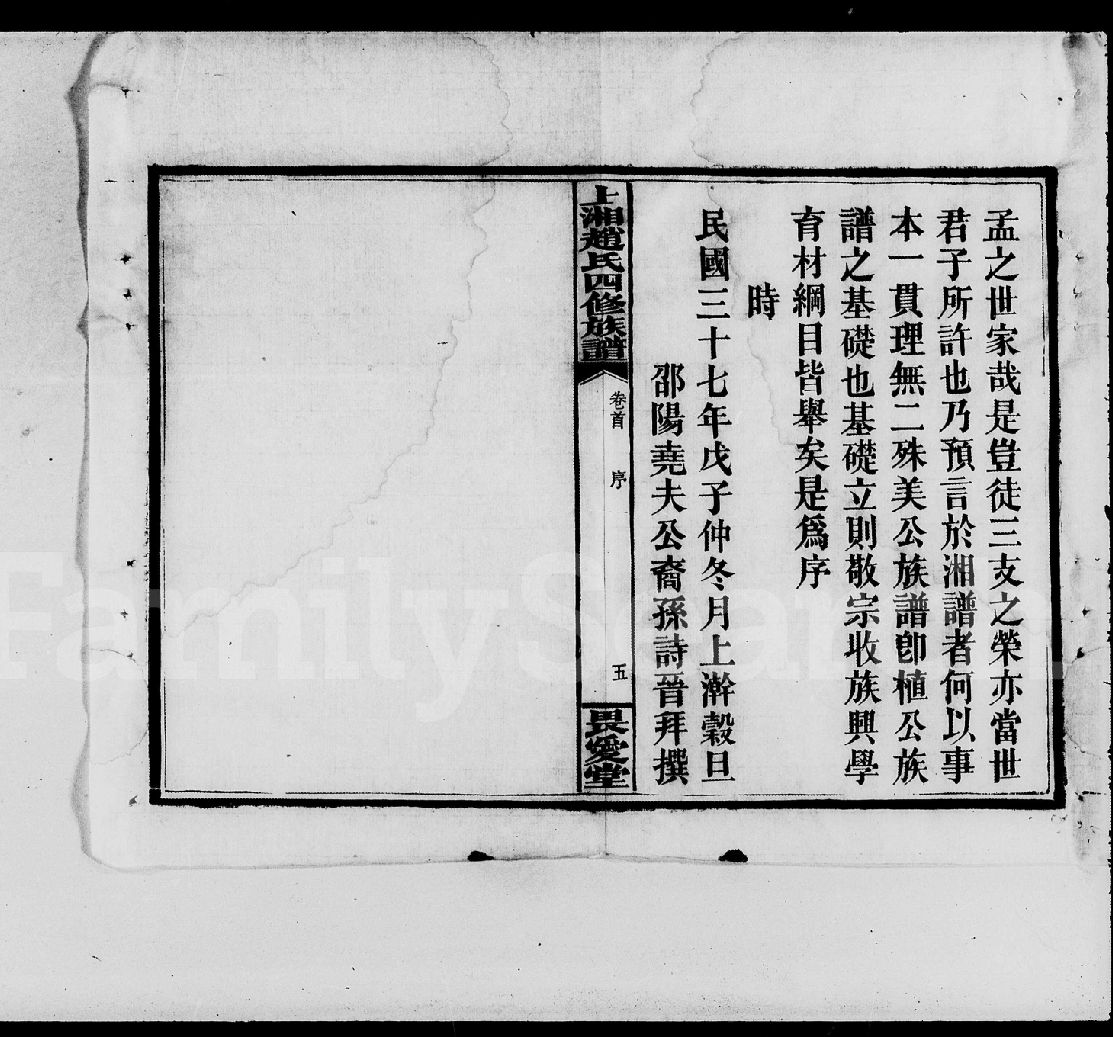 孟之世家哉是豈徒三支之榮亦當世
君子所許也乃預言於湘譜者何以事
本一貫理無二殊美公族譜卽植公族
譜之基礎也基礎立則敬宗收族興學
育材綱目皆舉矣是爲序
時
民國三十七年戊子仲冬月上澣穀旦
邵陽堯夫公裔孫詩晉拜撰
上湘趙氏四修族譜
卷首
序
五
畏愛堂
FamilySearch